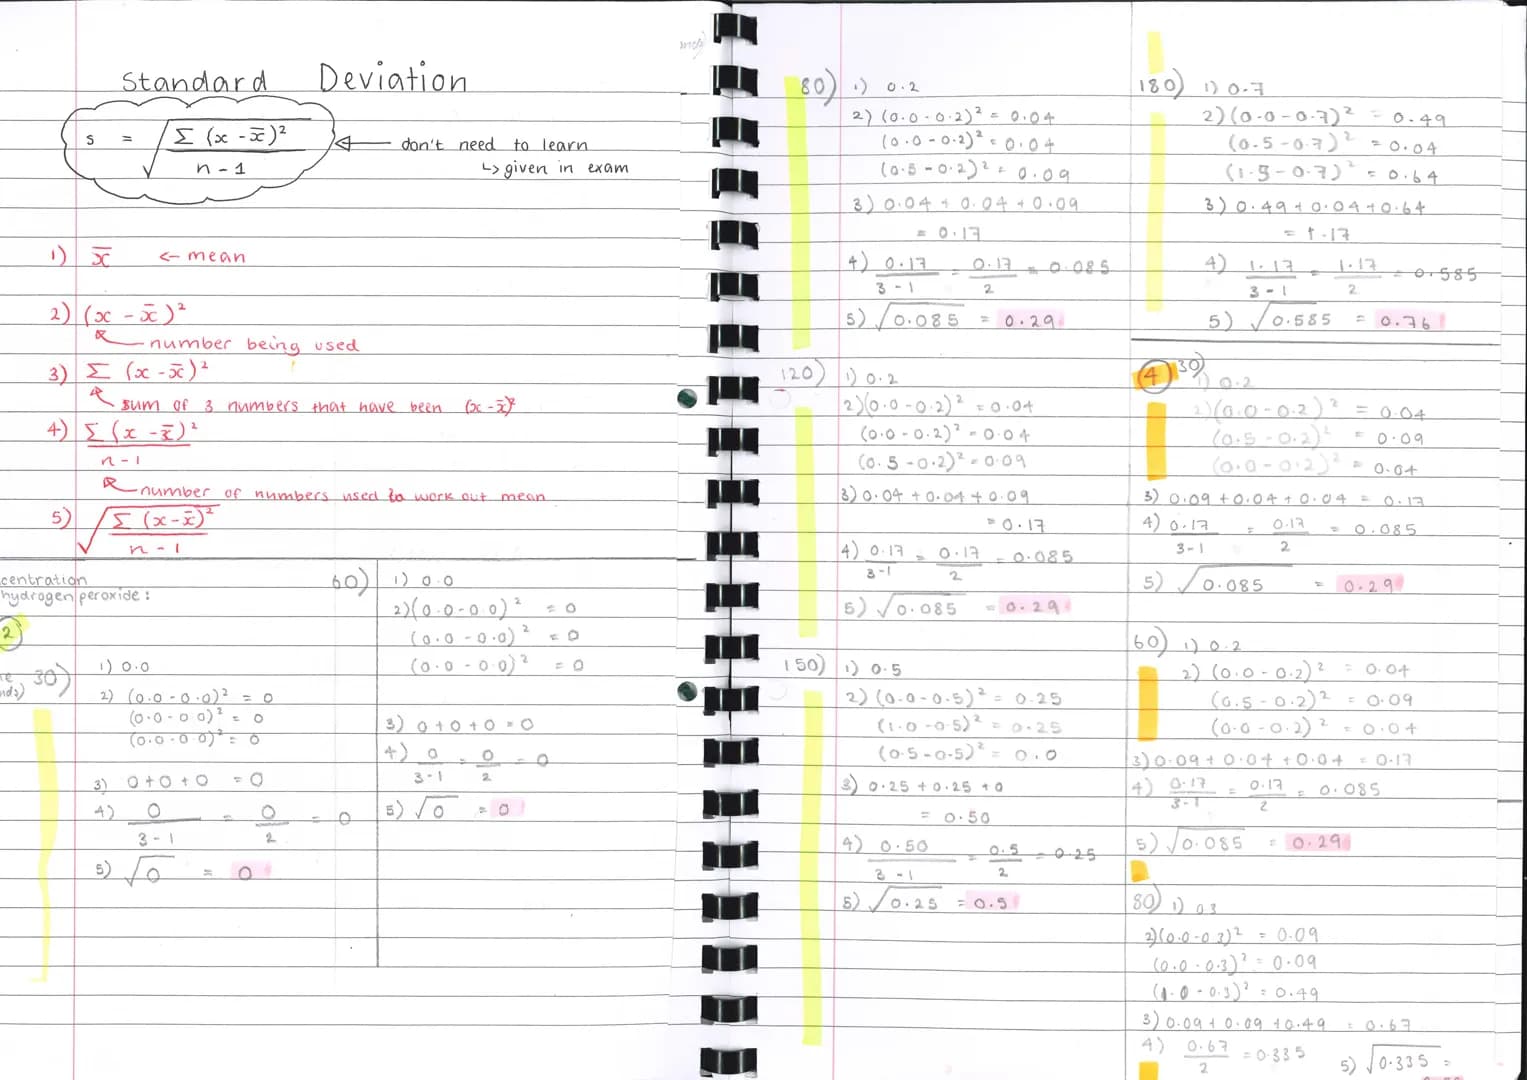 Standard Deviation
s = √ Σ (x - x̄)² / n - 1
← don't need to learn
↳ given in exam
1) x̄ ← mean
2) (x - x̄)²
number being used
3) Σ (x - x̄)²
sum of 3 numbers that have been (x - x̄)²
4) Σ (x - x̄)² / n - 1
number of numbers used to work out mean
5) √ Σ (x - x̄)² / n - 1
centration
hydrogen peroxide :
2
30)
1) 0.0
2) (0.0 - 0.0)² = 0
(0.0 - 0.0)² = 0
(0.0 - 0.0)² = 0
3) 0 + 0 + 0 = 0
4) 0 / 3 - 1 = 0 / 2 = 0
5) √0 = 0
60)
1) 0.0
2) (0.0 - 0.0)² = 0
(0.0 - 0.0)² = 0
(0.0 - 0.0)² = 0
3) 0 + 0 + 0 = 0
4) 0 / 3 - 1 = 0 / 2 = 0
5) √0 = 0
80) 1) 0.2
2) (0.0 - 0.2)² = 0.04
(0.0 - 0.2)² = 0.04
(0.5 - 0.2)² = 0.09
3) 0.04 + 0.04 + 0.09
= 0.17
4) 0.17 / 3 - 1 = 0.17 / 2 = 0.085
5) √0.085 = 0.29
120) 1) 0.2
2) (0.0 - 0.2)² = 0.04
(0.0 - 0.2)² = 0.04
(0.5 - 0.2)² = 0.09
3) 0.04 + 0.04 + 0.09
= 0.17
4) 0.17 / 3 - 1 = 0.17 / 2 = 0.085
5) √0.085 = 0.29
150) 1) 0.5
2) (0.0 - 0.5)² = 0.25
(1.0 - 0.5)² = 0.25
(0.5 - 0.5)² = 0.0
3) 0.25 + 0.25 + 0
= 0.50
4) 0.50 / 3 - 1 = 0.5 / 2 = 0.25
5) √0.25 = 0.5
180) 1) 0.7
2) (0.0 - 0.7)² = 0.49
(0.5 - 0.7)² = 0.04
(1.5 - 0.7)² = 0.64
3) 0.49 + 0.04 + 0.64
= 1.17
4) 1.17 / 3 - 1 = 1.17 / 2 = 0.585
5) √0.585 = 0.76
4 30)
1) 0.2
2) (0.0 - 0.2)² = 0.04
(0.5 - 0.2)² = 0.09
(0.0 - 0.2)² = 0.04
3) 0.09 + 0.04 + 0.04 = 0.17
4) 0.17 / 3 - 1 = 0.17 / 2 = 0.085
5) √0.085 = 0.29
60) 1) 0.2
2) (0.0 - 0.2)² = 0.04
(0.5 - 0.2)² = 0.09
(0.0 - 0.2)² = 0.04
3) 0.09 + 0.04 + 0.04 = 0.17
4) 0.17 / 3 - 1 = 0.17 / 2 = 0.085
5) √0.085 = 0.29
80) 1) 0.3
2) (0.0 - 0.3)² = 0.09
(0.0 - 0.3)² = 0.09
(1.0 - 0.3)² = 0.49
3) 0.09 + 0.09 + 0.49 = 0.67
4) 0.67 / 2 = 0.335 5) √0.335 =